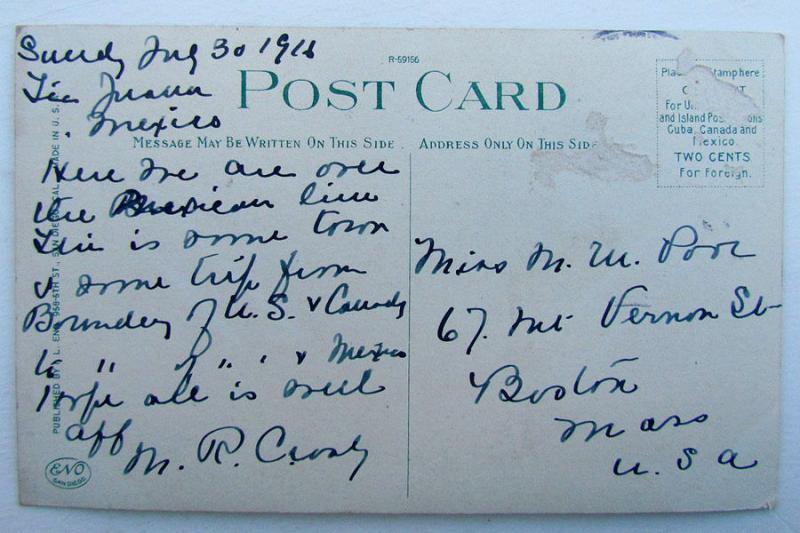 Sundy July 30 1916
Tia Juana
Mexico
R-59156
POST CARD
MESSAGE MAY BE WRITTEN ON THIS SIDE
ADDRESS ONLY ON THIS SIDE
Place stamp here
For
and Island
Cuba, Canada and
Mexico.
TWO CENTS
For Foreign.
Here we are over
the Mexican line
This is some town
& some trip from
Boundery of U.S. & Canady
to " of " ' & Mexico
I hope all is well
M. R. Crosby
Miss M. M. Poor
67. Mt Vernon St
Boston
Mass
U.S.A
PUBLISHED BY L. ENO, 958 5TH ST., SAN DIEGO, CAL. MADE IN U.S.
ENO
SAN DIEGO